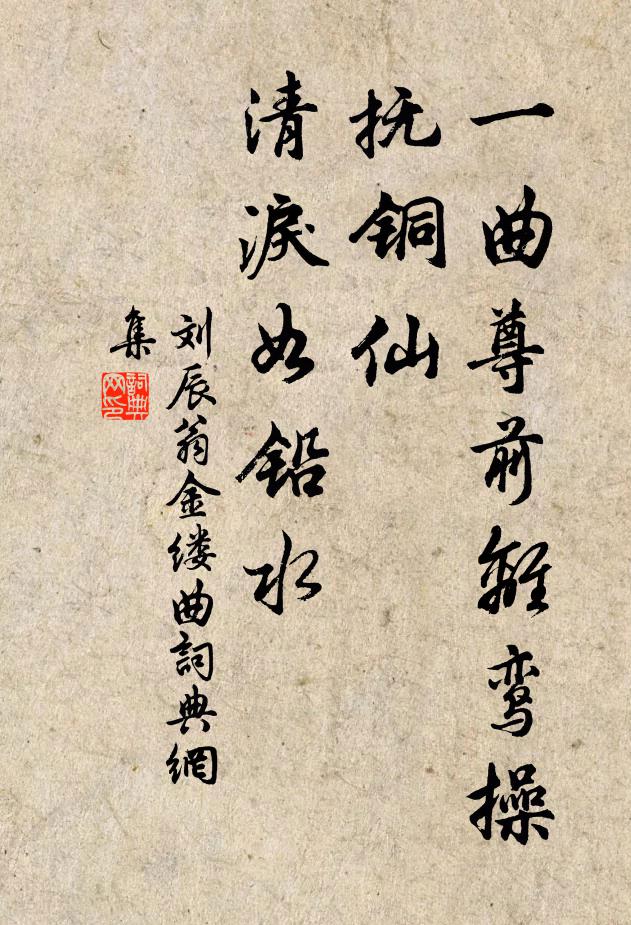 一曲尊前離鸾操
抚铜仙
清淚如铅水
刘辰翁金缕曲詞典網
集
詞典网印